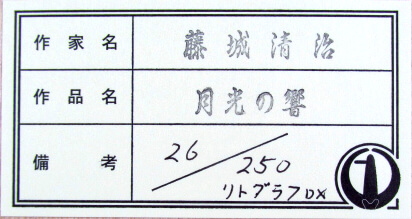 作家名 藤城清治
作品名 月光の響
備考 26/250
リトグラフDX